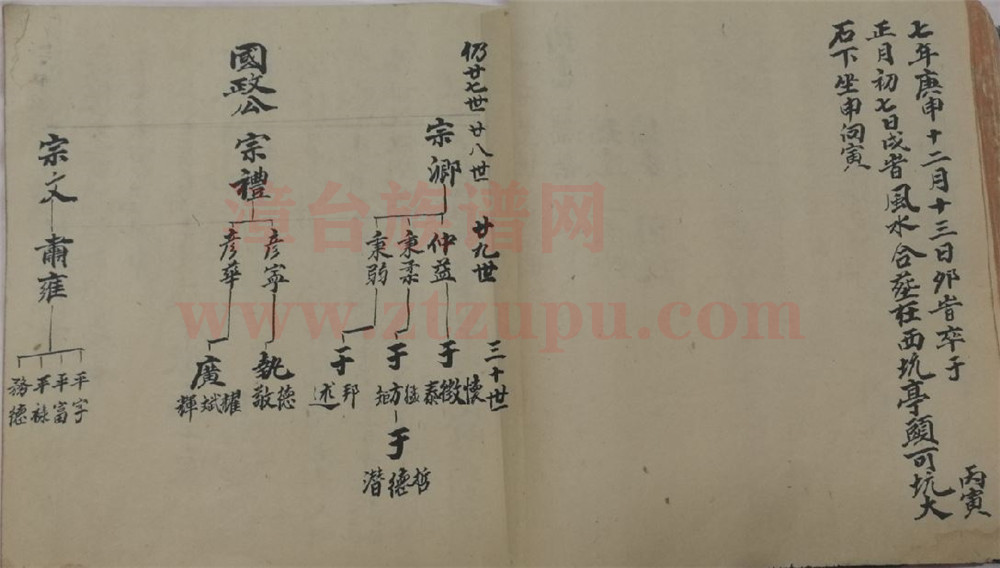 七年庚申十二月十三日卯时卒于
丙寅
正月初七日戌时風水合葬在西坑亭頭可坑大
石下坐申向寅
仍廿七世
廿八世
廿九世
三十世
國政公
宗卿
仲益
于
懷
徵
泰
秉柔
于
方
矩
于
哲
德
潛
秉弱
于
邦
述
宗禮
彦寧
執
德
敬
彦華
廣
耀
斌
輝
宗文
肅雍
平字
平富
平祿
務德
漳台族谱网
www.ztzupu.com